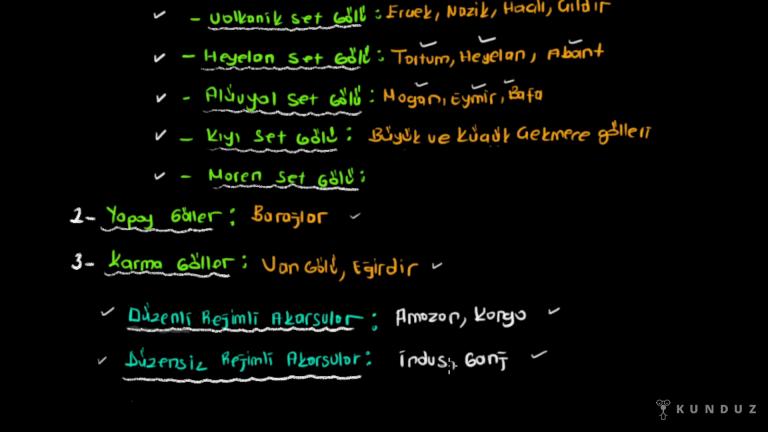 ✓ - Volkanik Set Gölü : Erçek, Nazik, Haçlı, Çıldır
✓ - Heyelan Set Gölü : Tortum, Heyelan, Abant
✓ - Alüvyal Set Gölü : Mogan, Eymir, Bafa
✓ - Kıyı Set Gölü : Büyük ve Küçük Çekmece gölleri
✓ - Moren Set Gölü :
2- Yapay Göller : Barajlar ✓
3- Karma Göller : Van Gölü, Eğirdir ✓
✓ Düzenli Rejimli Akarsular : Amazon, Kongo ✓
✓ Düzensiz Rejimli Akarsular : İndus, Ganj ✓
KUNDUZ